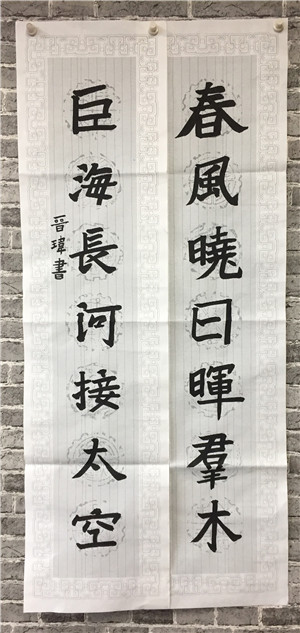 春風曉日暉羣木
巨海長河接太空
晉瑋書